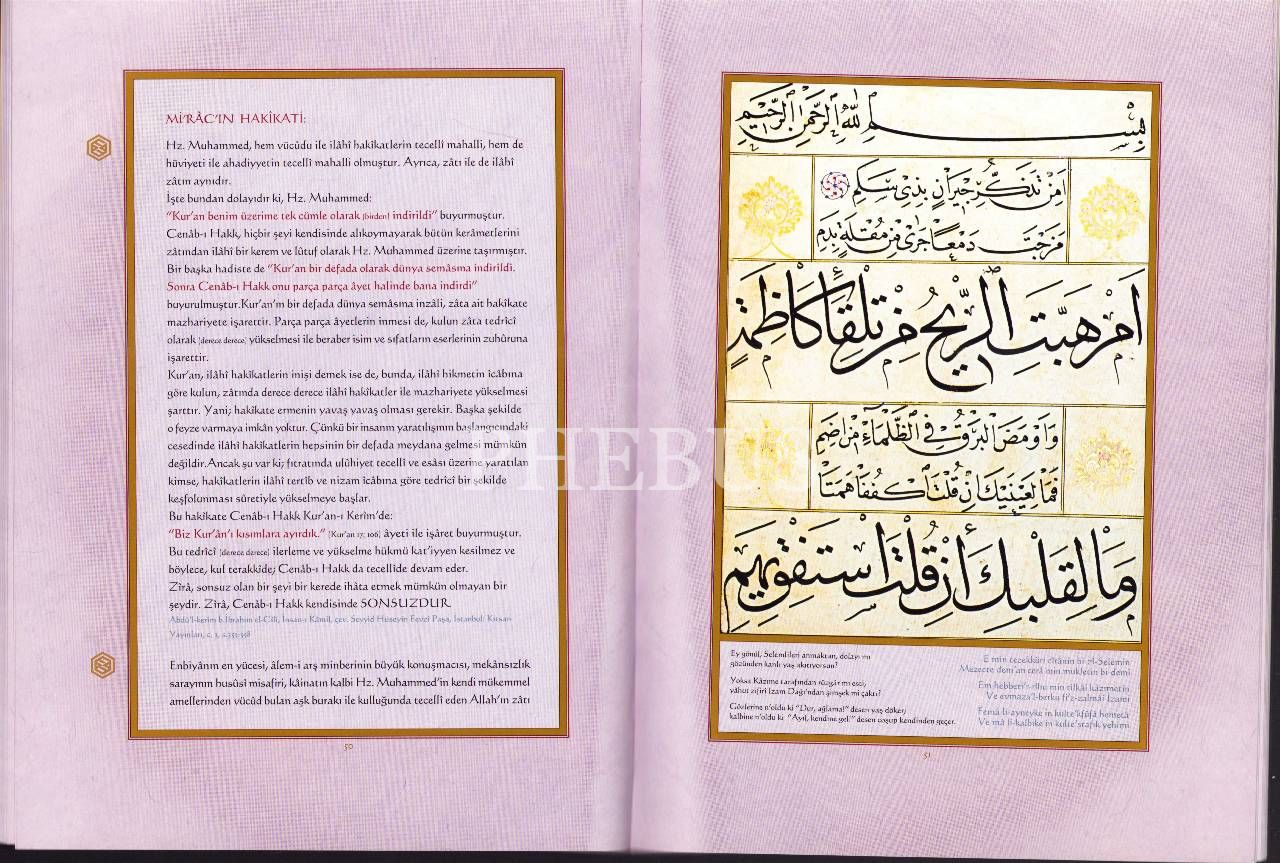 Mİ'RÂC'IN HAKİKATİ:
Hz. Muhammed, hem vücûdu ile ilâhî hakîkatlerin tecellî mahalli, hem de
hüviyeti ile ahadiyyetin tecellî mahalli olmuştur. Ayrıca, zâtı ile de ilâhî
zâtın aynıdır.
İşte bundan dolayıdır ki, Hz. Muhammed:
"Kur'an benim üzerime tek cümle olarak (birden) indirildi" buyurmuştur.
Cenâb-ı Hakk, hiçbir şeyi kendisinde alıkoymayarak bütün kerâmetlerini
zâtından ilâhî bir kerem ve lûtuf olarak Hz. Muhammed üzerine taşırmıştır.
Bir başka hadiste de "Kur'an bir defada olarak dünya semâsına indirildi.
Sonra Cenâb-ı Hakk onu parça parça âyet halinde bana indirdi"
buyurulmuştur.Kur'an'ın bir defada dünya semâsına inzâli, zâta ait hakîkate
mazhariyete işarettir. Parça parça âyetlerin inmesi de, kulun zâta tedrîcî
olarak (derece derece) yükselmesi ile beraber isim ve sıfatların eserlerinin zuhûruna
işarettir.
Kur'an, ilâhî hakîkatlerin inişi demek ise de, bunda, ilâhî hikmetin îcâbına
göre kulun, zâtında derece derece ilâhî hakîkatler ile mazhariyete yükselmesi
şarttır. Yani; hakîkate ermenin yavaş yavaş olması gerekir. Başka şekilde
o feyze varmaya imkân yoktur. Çünkü bir insanın yaratılışının başlangıcındaki
cesedinde ilâhî hakîkatlerin hepsinin bir defada meydana gelmesi mümkün
değildir.Ancak şu var ki; fıtratında ulûhiyet tecellî ve esâsı üzerine yaratılan
kimse, hakîkatlerin ilâhî tertîb ve nizam icâbına göre tedrîcî bir şekilde
keşfolunması sûretiyle yükselmeye başlar.
Bu hakîkate Cenâb-ı Hakk Kur'an-ı Kerîm'de:
"Biz Kur'ân'ı kısımlara ayırdık." (Kur'an 17; 106) âyeti ile işâret buyurmuştur.
Bu tedrîcî (derece derece) ilerleme ve yükselme hükmü kat'iyyen kesilmez ve
böylece, kul terakkîde; Cenâb-ı Hakk da tecellîde devam eder.
Zîrâ, sonsuz olan bir şeyi bir kerede ihâta etmek mümkün olmayan bir
şeydir. Zîrâ, Cenâb-ı Hakk kendisinde SONSUZDUR.
Abdü'l-kerîm b.İbrahim el-Cîlî, İnsan-ı Kâmil, çev. Seyyid Hüseyin Fevzî Paşa, İstanbul: Kitsan
Yayınları, c. 3, s.353-358
Enbiyânın en yücesi, âlem-i arş minberinin büyük konuşmacısı, mekânsızlık
sarayının husûsî misafiri, kâinatın kalbi Hz. Muhammed'in kendi mükemmel
amellerinden vücûd bulan aşk burakı ile kulluğunda tecellî eden Allah'ın zâtı
50
بسم الله الرحمن الرحيم
امن تذكر جيران بذى سلم
مزجت دمعا جرى من مقلة بدم
ام هبت الريح من تلقاء كاظمة
واومض البرق في الظلماء من اضم
فما لعينيك ان قلت اكففا همتا
وما لقلبك ان قلت استفق يهم
Ey gönül, Selemlileri anmaktan, dolayı mı
gözünden kanlı yaş akıtıyorsun?
Yoksa Kâzıme tarafından rüzgâr mı esti,
yâhut zifirî Izam Dağı'ndan şimşek mi çaktı?
Gözlerine n'oldu ki "Dur, ağlama!" desen yaş döker,
kalbine n'oldu ki "Ayıl, kendine gel!" desen coşup kendinden geçer.
E min tezekküri cîrânin bi zî-Selemin
Mezecte dem'an cerâ min mukletin bi-demi
Em hebbeti'r-rîhu min tilkâi kâzımetin
Ve evmaza'l-berku fi'z-zalmâi Izami
Femâ li-ayneyke in külte'kfüfâ hemetâ
Ve mâ li-kalbike in külte'stafik yehimi
51
PHEBUS